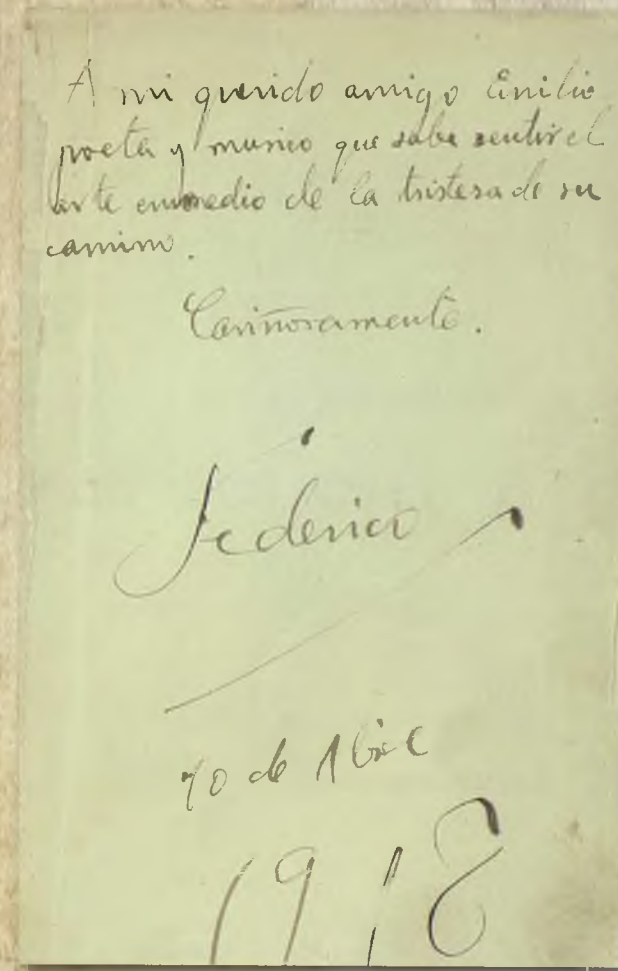 A mi querido amigo Emilio
poeta y musico que sabe sentir el
arte enmedio de la tristeza de su
camino.
Cariñosamente.
Federico
10 de Abril
1918